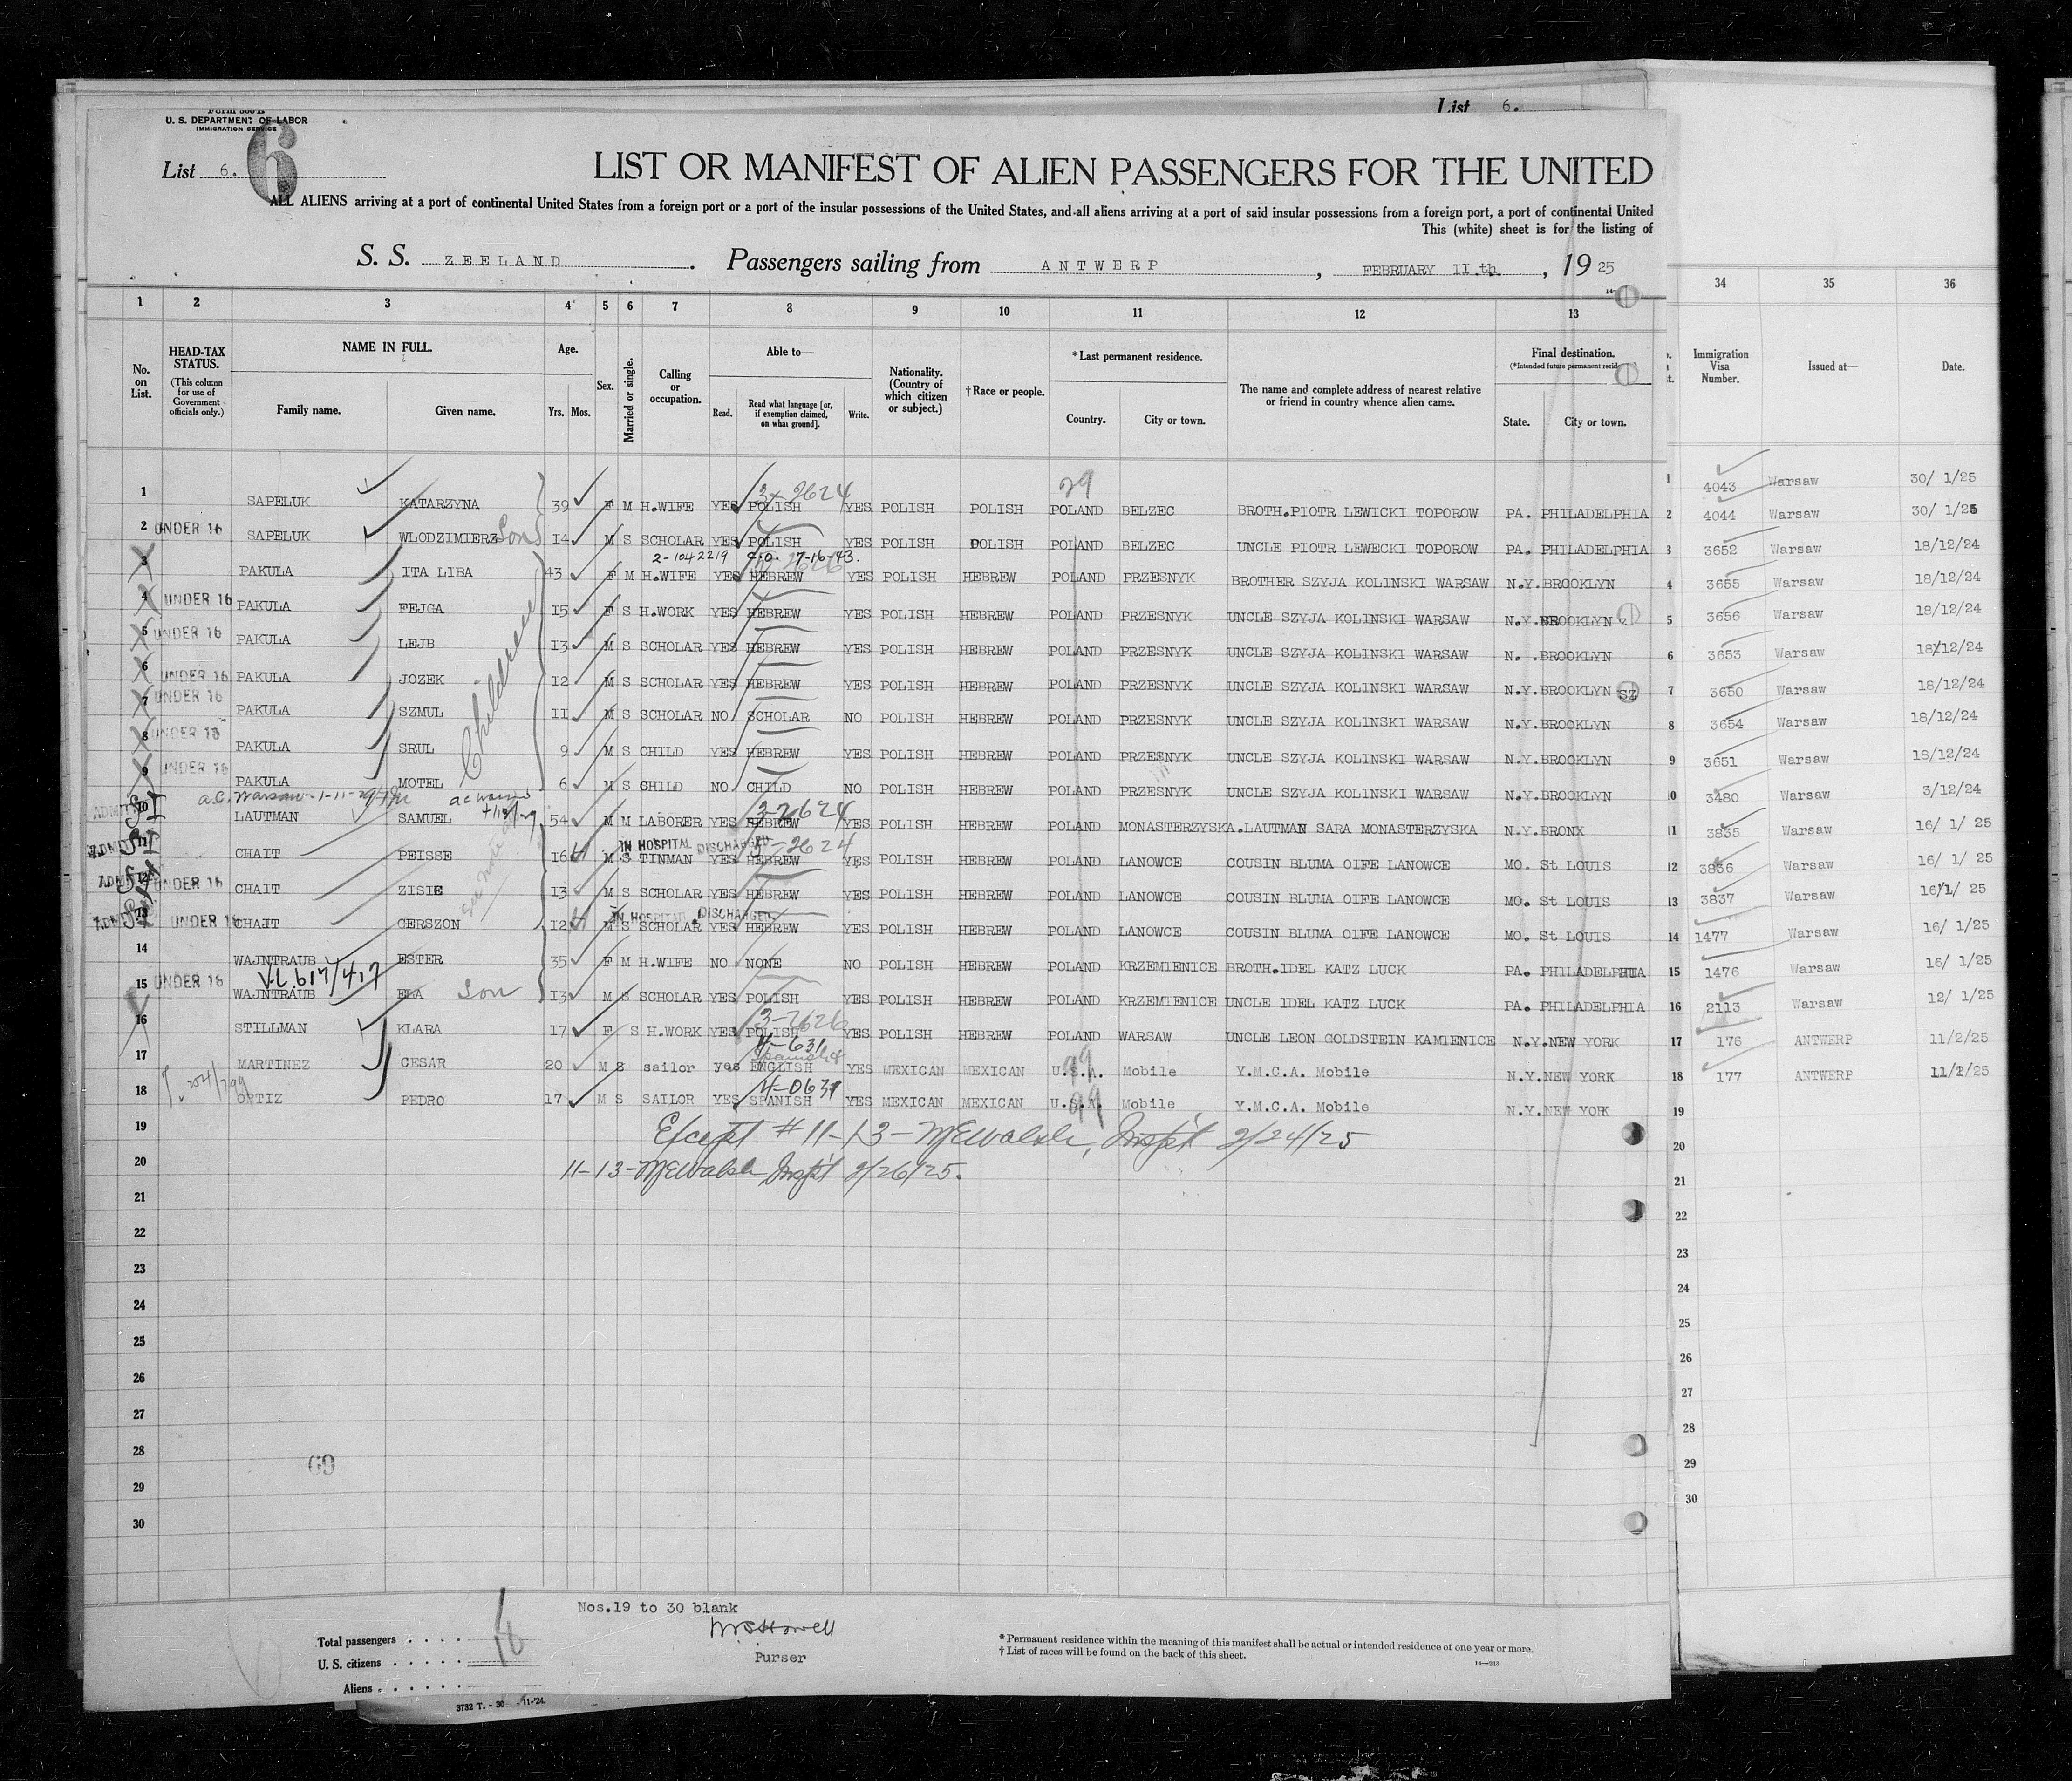 List 6.
Form 500 B
U. S. DEPARTMENT OF LABOR
IMMIGRATION SERVICE
List 6. 6
LIST OR MANIFEST OF ALIEN PASSENGERS FOR THE UNITED
ALL ALIENS arriving at a port of continental United States from a foreign port or a port of the insular possessions of the United States, and all aliens arriving at a port of said insular possessions from a foreign port, a port of continental United
This (white) sheet is for the listing of
S. S. ZEELAND. Passengers sailing from ANTWERP, FEBRUARY 11.th, 1925
1 2 3 4 5 6 7 8 9 10 11 12 13 34 35 36
No. on List. HEAD-TAX STATUS. (This column for use of Government officials only.) NAME IN FULL. Family name. Given name. Age. Yrs. Mos. Sex. Married or single. Calling or occupation. Able to— Read. Read what language [or, if exemption claimed, on what ground]. Write. Nationality. (Country of which citizen or subject.) † Race or people. *Last permanent residence. Country. City or town. The name and complete address of nearest relative or friend in country whence alien came. Final destination. (*Intended future permanent resid State. City or town. Immigration Visa Number. Issued at— Date.
3-2624 29
1 SAPELUK KATARZYNA 39 F M H.WIFE YES POLISH YES POLISH POLISH POLAND BELZEC BROTH.PIOTR LEWICKI TOPOROW PA. PHILADELPHIA 1 4043 Warsaw 30/ 1/25
2 UNDER 16 SAPELUK WLODZIMIERZ Son 14 M S SCHOLAR YES POLISH YES POLISH POLISH POLAND BELZEC UNCLE PIOTR LEWECKI TOPOROW PA. PHILADELPHIA 2 4044 Warsaw 30/ 1/25
2-1042219 C.O. 7-16-43.
3 PAKULA ITA LIBA 43 F M H.WIFE YES HEBREW YES POLISH HEBREW POLAND PRZESNYK BROTHER SZYJA KOLINSKI WARSAW N.Y. BROOKLYN 3 3652 Warsaw 18/12/24
4 UNDER 16 PAKULA FEJGA 15 F S H.WORK YES HEBREW YES POLISH HEBREW POLAND PRZESNYK UNCLE SZYJA KOLINSKI WARSAW N.Y. BROOKLYN 4 3655 Warsaw 18/12/24
Children
5 UNDER 16 PAKULA LEJB 13 M S SCHOLAR YES HEBREW YES POLISH HEBREW POLAND PRZESNYK UNCLE SZYJA KOLINSKI WARSAW N. .BROOKLYN 5 3656 Warsaw 18/12/24
6 UNDER 16 PAKULA JOZEK 12 M S SCHOLAR YES HEBREW YES POLISH HEBREW POLAND PRZESNYK UNCLE SZYJA KOLINSKI WARSAW N.Y.BROOKLYN 6 3653 Warsaw 18/12/24
7 UNDER 16 PAKULA SZMUL 11 M S SCHOLAR NO SCHOLAR NO POLISH HEBREW POLAND PRZESNYK UNCLE SZYJA KOLINSKI WARSAW N.Y.BROOKLYN 7 3650 Warsaw 18/12/24
8 UNDER 16 PAKULA SRUL 9 M S CHILD YES HEBREW YES POLISH HEBREW POLAND PRZESNYK UNCLE SZYJA KOLINSKI WARSAW N.Y.BROOKLYN 8 3654 Warsaw 18/12/24
9 UNDER 16 PAKULA MOTEL 6 M S CHILD NO CHILD NO POLISH HEBREW POLAND PRZESNYK UNCLE SZYJA KOLINSKI WARSAW N.Y.BROOKLYN 9 3651 Warsaw 18/12/24
a.c. Warsaw-1-11-29 3-2624
10 LAUTMAN SAMUEL 54 M M LABORER YES HEBREW YES POLISH HEBREW POLAND MONASTERZYSKA.LAUTMAN SARA MONASTERZYSKA N.Y.BRONX 10 3480 Warsaw 3/12/24
IN HOSPITAL DISCHARGED
11 CHAIT PEISSE 16 M S TINMAN YES HEBREW YES POLISH HEBREW POLAND LANOWCE COUSIN BLUMA OIFE LANOWCE MO. St LOUIS 11 3835 Warsaw 16/ 1/ 25
12 UNDER 16 CHAIT ZISIE 13 M S SCHOLAR YES HEBREW YES POLISH HEBREW POLAND LANOWCE COUSIN BLUMA OIFE LANOWCE MO. St LOUIS 12 3836 Warsaw 16/ 1/ 25
IN HOSPITAL DISCHARGED
13 ADMITTED UNDER 16 CHAIT GERSZON 12 M S SCHOLAR YES HEBREW YES POLISH HEBREW POLAND LANOWCE COUSIN BLUMA OIFE LANOWCE MO. St LOUIS 13 3837 Warsaw 16/1/ 25
14 WAJNTRAUB ESTER 35 F M H.WIFE NO NONE NO POLISH HEBREW POLAND KRZEMIENICE BROTH.IDEL KATZ LUCK PA. PHILADELPHIA 14 1477 Warsaw 16/ 1/25
V.L. 617/417
15 UNDER 16 WAJNTRAUB ELA Son 13 M S SCHOLAR YES POLISH YES POLISH HEBREW POLAND KRZEMIENICE UNCLE IDEL KATZ LUCK PA. PHILADELPHIA 15 1476 Warsaw 16/ 1/25
3-2626
16 STILLMAN KLARA 17 F S H.WORK YES POLISH YES POLISH HEBREW POLAND WARSAW UNCLE LEON GOLDSTEIN KAMIENICE N.Y.NEW YORK 16 2113 Warsaw 12/ 1/25
4-631 Spanish 99
17 MARTINEZ CESAR 20 M S sailor yes ENGLISH YES MEXICAN MEXICAN U.S.A. Mobile Y.M.C.A. Mobile N.Y.NEW YORK 17 176 ANTWERP 11/2/25
4-0631 99
18 ORTIZ PEDRO 17 M S SAILOR YES SPANISH YES MEXICAN MEXICAN U.S.A. Mobile Y.M.C.A. Mobile N.Y.NEW YORK 18 177 ANTWERP 11/2/25
19 Except # 11-13 - MEWalsh, Insp't 2/24/25 19
20 11-13-MEWalsh Insp't 2/26/25. 20
21 21
22 22
23 23
24 24
25 25
26 26
27 27
28 28
69
29 29
30 30
Nos.19 to 30 blank
Total passengers . . . . 18
U. S. citizens . . . . .
Aliens . . . . . .
Purser
* Permanent residence within the meaning of this manifest shall be actual or intended residence of one year or more.
† List of races will be found on the back of this sheet.
14—213
3732 T. - 30 - 11-'24.